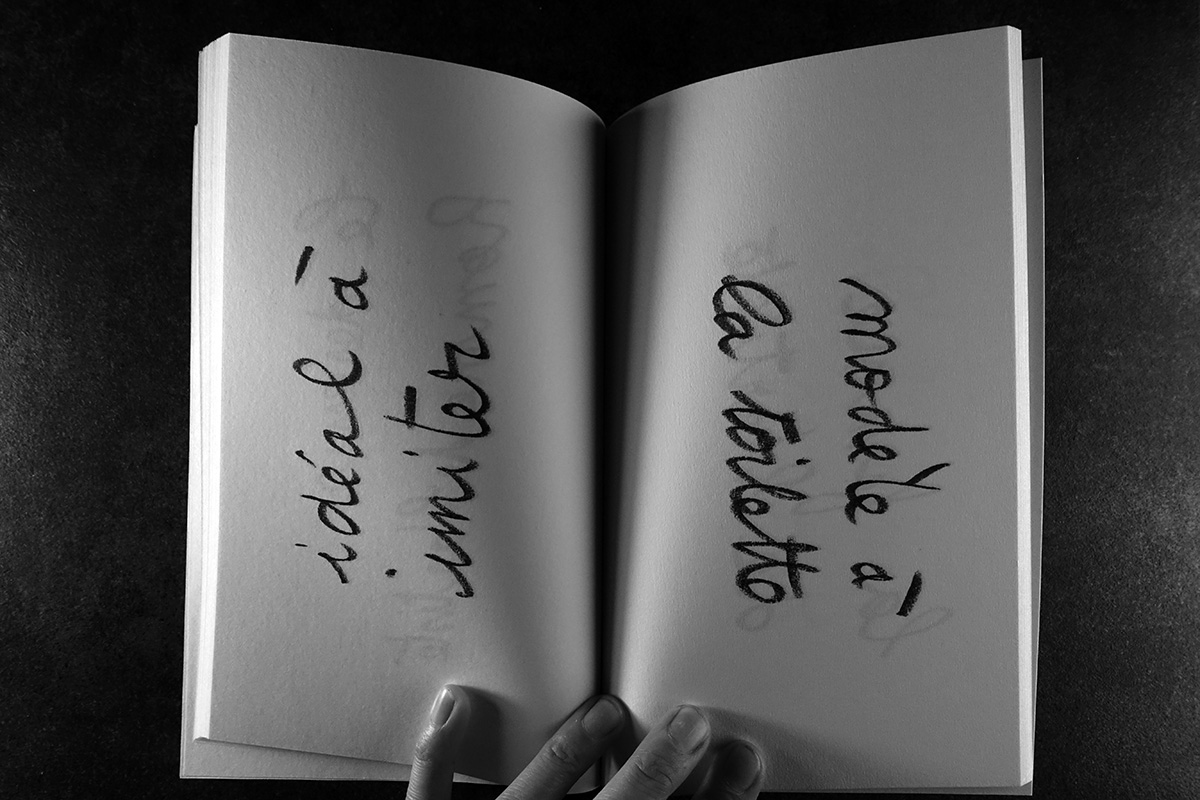 idéal à
imiter
modèle à
la toiletto